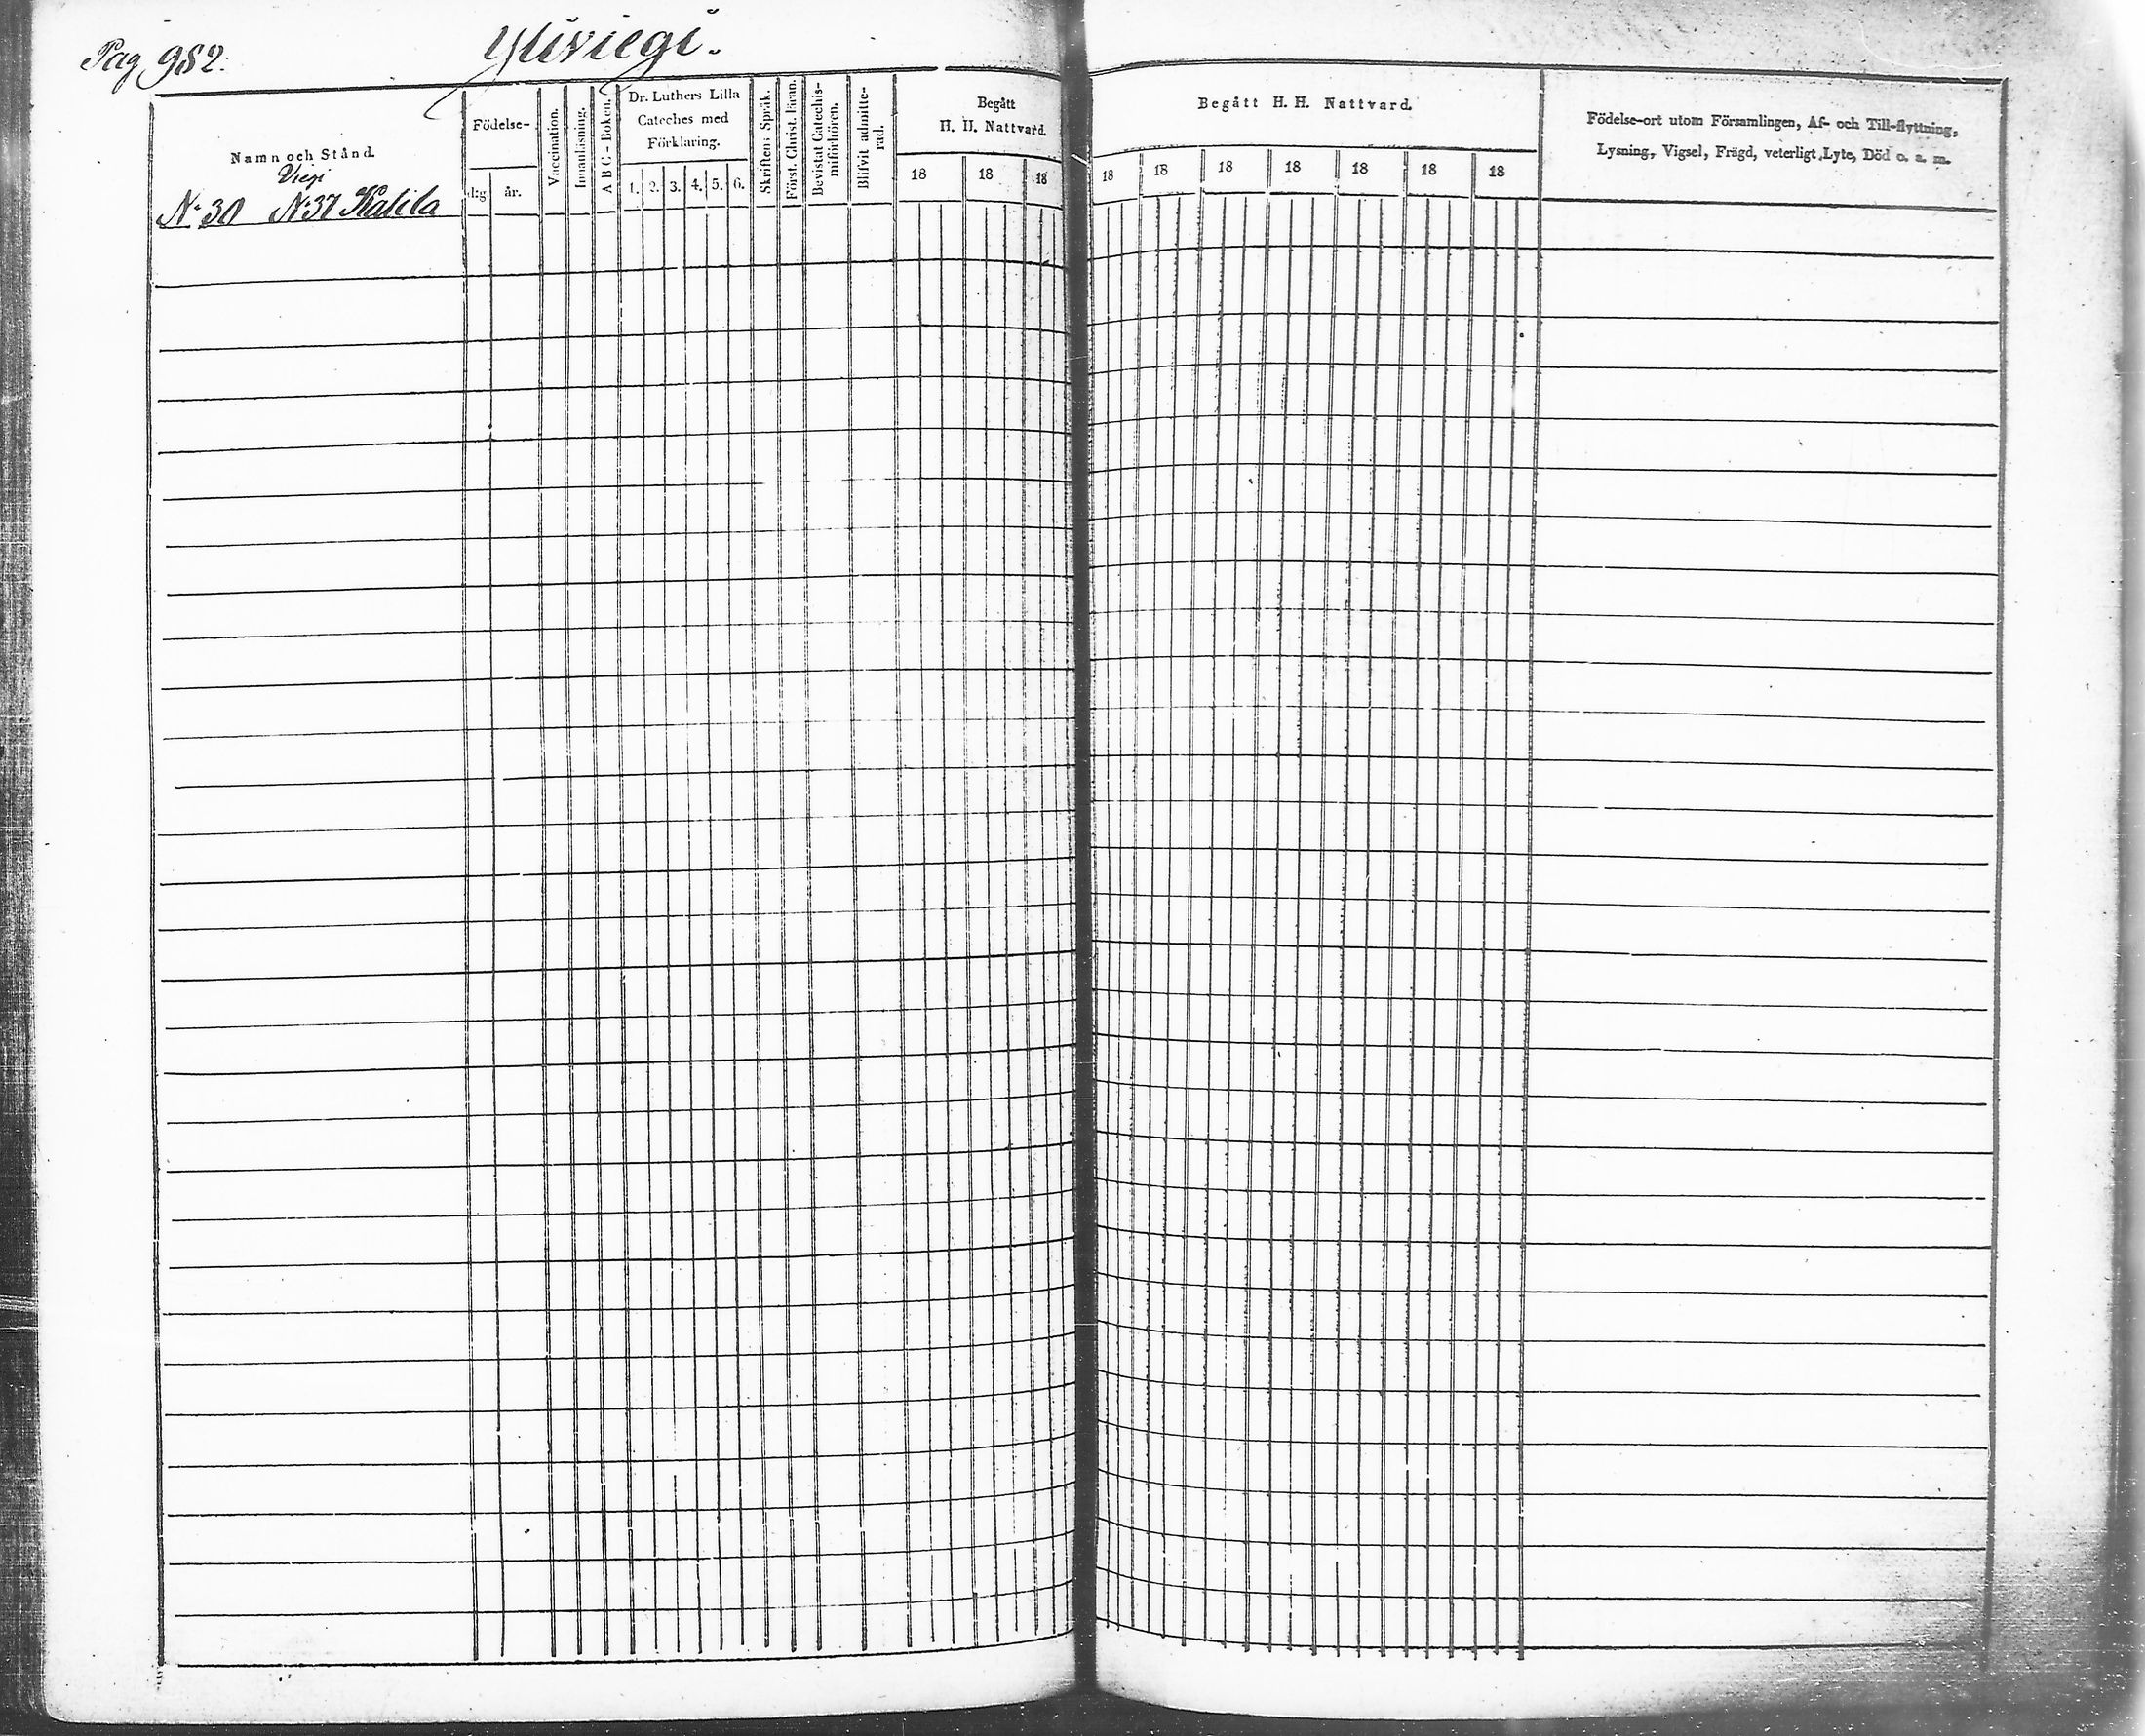 Pag 982.
Yliviegi.
Namn och Stånd.
Viegi
N: 30 N: 37 Katila
Födelse-
dag. år.
Vaccination.
Innanläsning.
A B C - Boken.
Dr. Luthers Lilla
Cateches med
Förklaring.
1. 2. 3. 4. 5. 6.
Skriftens Språk.
Först. Christ. Läran.
Bevistat Catechis-
miförhören.
Blifvit admitte-
rad.
Begått
H. H. Nattvard.
18 18 18
Begått H. H. Nattvard.
18 18 18 18 18 18 18
Födelse-ort utom Församlingen, Af- och Till-flyttning,
Lysning, Vigsel, Frägd, veterligt Lyte, Död o. s. m.